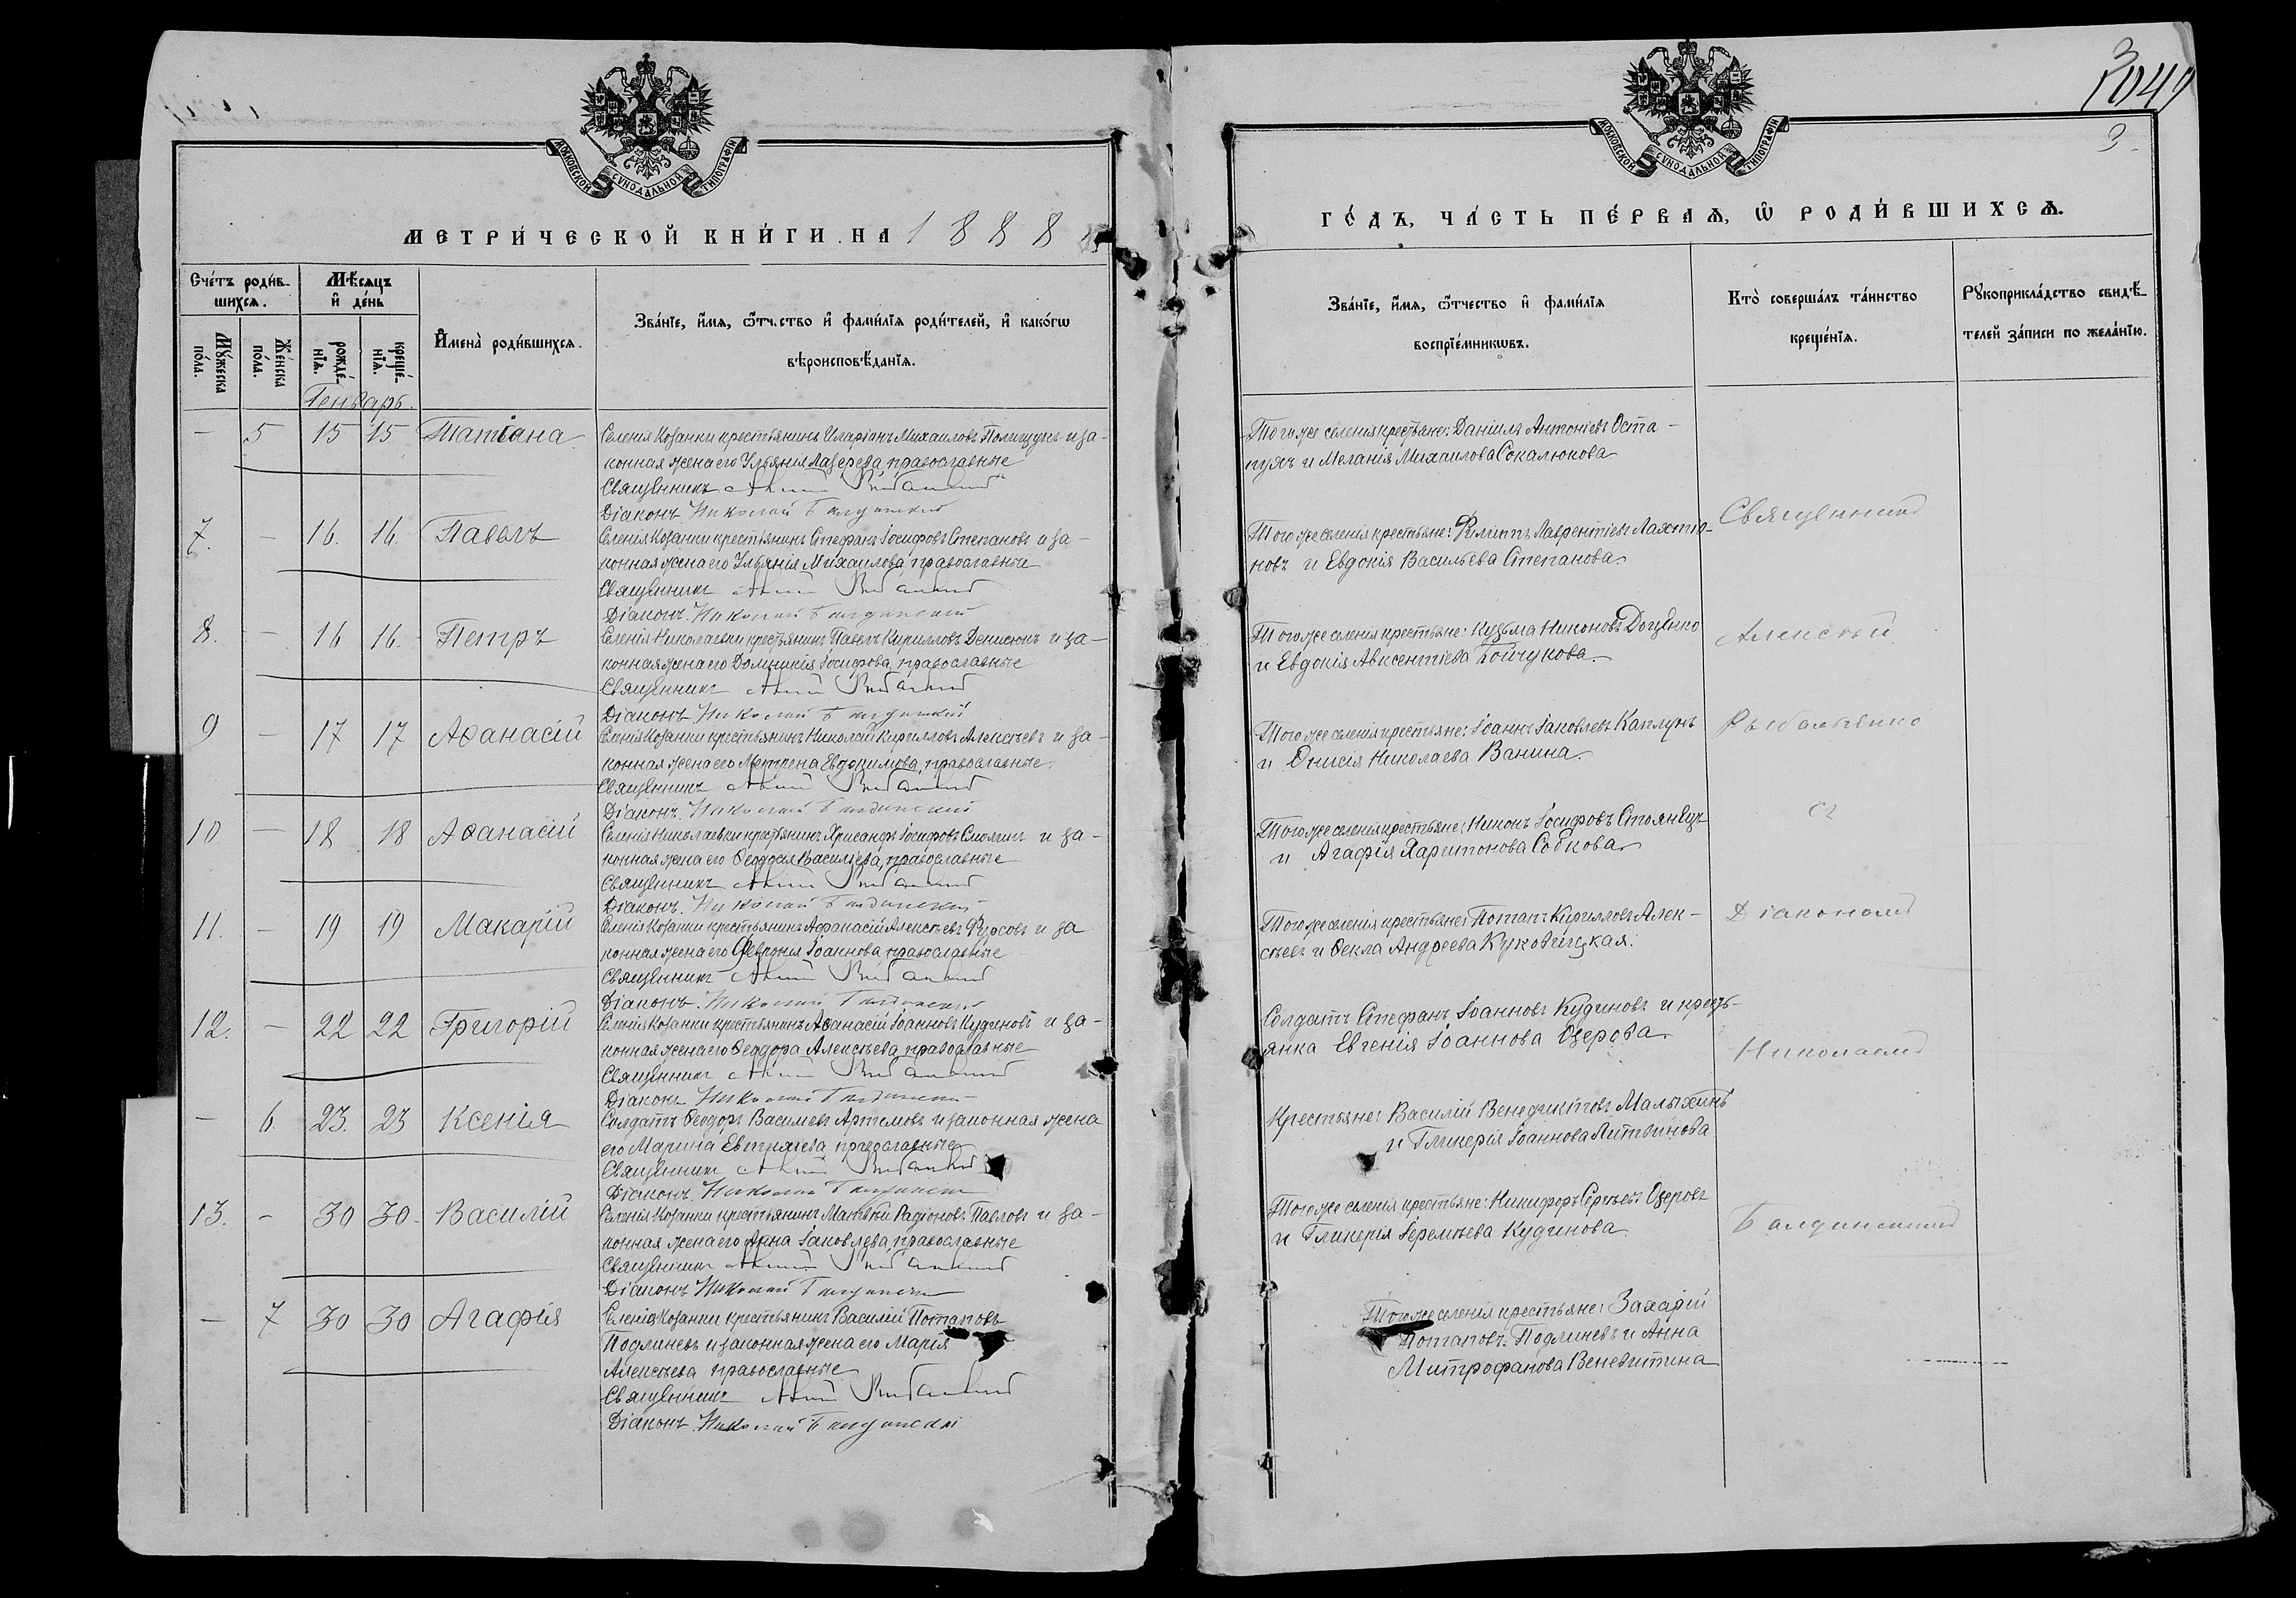 МОСКОВСКОЙ СѴНОДАЛЬНОЙ ТИПОГРАФІИ
МЕТРИ́ЧЕСКОЙ КНИ́ГИ НА 1888
Сче́тъ роди́в-
шихсѧ.
Мѣ́сѧцъ
и҆ де́нь
Мꙋ́жеска по́ла.
Же́нска по́ла.
рожде́-нїѧ.
креще́-нїѧ.
И҆мена̀ роди́вшихсѧ.
Зва́нїе, и҆́мѧ, ѻ҆́тчество и҆ фами́лїѧ роди́телей, и҆ како́гѡ
вѣроисповѣ́данїѧ.
Генварь.
— 5 15 15 Татіана Селенія Козанки крестьянинъ Иларіонъ Михаиловъ Полищукъ и за-
конная жена его Ульянія Лазерева, православные
Священникъ
Діаконъ Николай Балдинскій
7. — 16. 16. Павелъ Селенія Козанки крестьянинъ Стефанъ Іосифовъ Степановъ и за-
конная жена его Ульянія Михаилова, православные
Священникъ
Діаконъ Николай Балдинскій
8. — 16 16. Петръ Селенія Николаевки крестьянинъ Павелъ Кирилловъ Денисюкъ и за-
конная жена его Домникія Іосифова, православные
Священникъ
Діаконъ Николай Балдинскій
9 — 17 17 Аѳанасій Селенія Козанки крестьянинъ Николай Кирилловъ Алексѣевъ и за-
конная жена его Матрена Евдокимова, православные.
Священникъ
Діаконъ Николай Балдинскій
10 — 18 18 Аѳанасій Селенія Николаевки крестьянинъ Хрисанфъ Іосифовъ и за-
конная жена его Ѳеодосія Васильева, православные
Священникъ
Діаконъ Николай Балдинскій
11. — 19 19 Макарій Селенія Козанки крестьянинъ Афанасій Алексѣевъ Фурсовъ и за
конная жена его Февронія Іоаннова, православные
Священникъ
Діаконъ Николай Балдинскій
12. — 22 22 Григорій Селенія Козанки крестьянинъ Аѳанасій Іоанновъ Кудиновъ и за-
конная жена его Ѳеодора Алексѣева, православные
Священникъ
Діаконъ Николай Балдинскій
— 6. 23. 23 Ксенія Солдатъ Ѳеодоръ Васильевъ Артемовъ и законная жена
его Марина православные
Священникъ
Діаконъ Николай Балдинскій
13. — 30 30. Василій Селенія Козанки крестьянинъ Матвѣй Радіоновъ Павловъ и за-
конная жена его Анна Іаковлева, православные
Священникъ
Діаконъ Николай Балдинскій
— 7 30 30 Агафія Селенія Козанки крестьянинъ Василій Потаповъ
Подлиневъ и законная жена его Марія
Алексѣева православные
Священникъ
Діаконъ Николай Балдинскій
3
МОСКОВСКОЙ СѴНОДАЛЬНОЙ ТИПОГРАФІИ
ГО́ДЪ, ЧА́СТЬ ПЕ́РВАѦ, Ѡ҆ РОДИ́ВШИХСѦ.
Зва́нїе, и҆́мѧ, ѻ҆́тчество и҆ фами́лїѧ
воспрїе́мникѡвъ.
Кто̀ соверша́лъ та́инство
креще́нїѧ.
Рꙋкоприкла́дство свидѣ́-
телей за́писи по жела́нїю.
Того же селенія крестьяне: Даніилъ Антоніевъ Оста-
пукъ и Меланія Михаилова Сокалюкова
Того же селенія крестьяне: Филиппъ Лаврентіевъ Лахтіо-
новъ и Евдокія Васильева Степанова.
Того же селенія крестьяне: Кузьма Никоновъ Доценко
и Евдокія Авксентіева Бойчукова.
Того же селенія крестьяне: Іоаннъ Іаковлевъ Каплунъ
и Онисія Николаева Ванина.
Того же селенія крестьяне: Никонъ Іосифовъ Стоянецъ
и Агафія Харитонова Собкова
Того же селенія крестьяне: Потапъ Кирилловъ Алек-
сѣевъ и Ѳекла Андреева Куковицкая.
Солдатъ Стефанъ Іоанновъ Кудиновъ и кресть-
янка Евгенія Іоаннова Озерова
Крестьяне: Василій Венедиктовъ Малыхинъ
и Гликерія Іоаннова Литвинова
Того же селенія крестьяне: Никифоръ Сергѣевъ Озеровъ
и Гликерія Іеремѣева Кудинова.
Того же селенія крестьяне: Захарій
Потаповъ Подлиневъ и Анна
Митрофанова Веневитина
Священникъ
Алексѣй
Рыбальченко
съ
Діакономъ
Николаемъ
Балдинскимъ